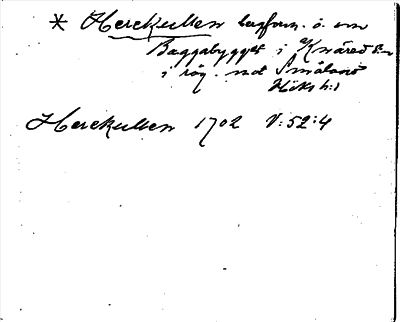 * Herekullen bergform. ö. om
Baggabygget i Knäred s:n
i rög. mot Småland
Höks h:d
Herekullen 1702 V:52:4